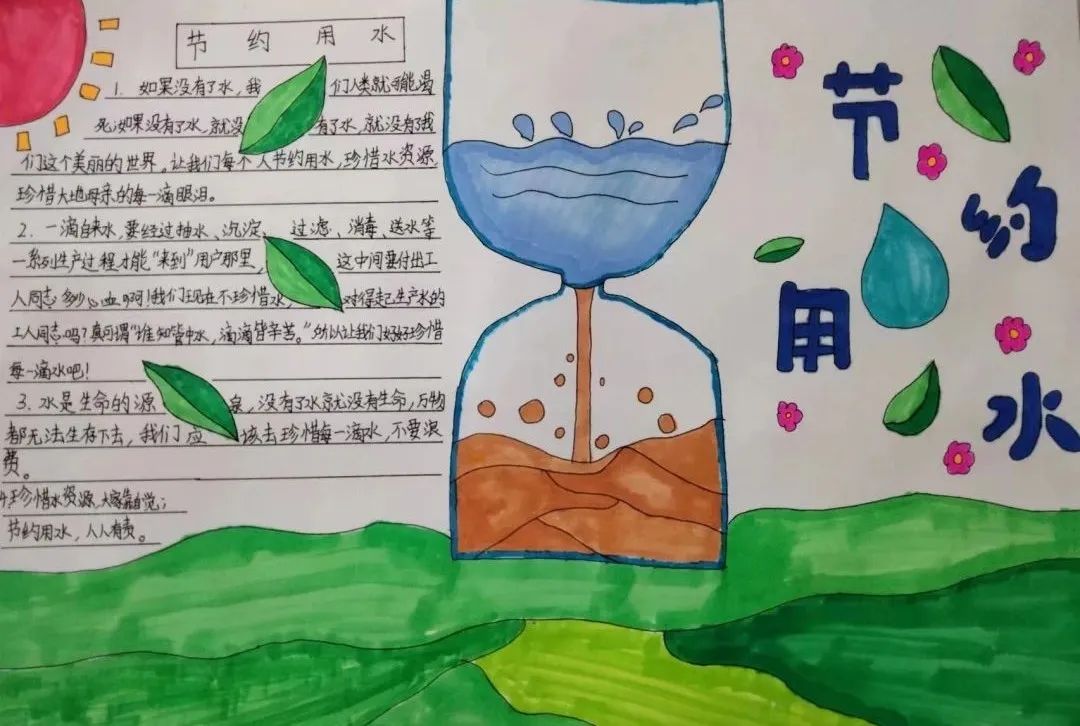 节约用水
1. 如果没有了水，我们人类就可能渴
死；如果没有了水，就没有了水，就没有了我
们这个美丽的世界。让我们每个人节约用水，珍惜水资源，
珍惜大地母亲的每一滴眼泪。
2. 一滴自来水，要经过抽水、沉淀、过滤、消毒、送水等
一系列生产过程才能“来到”用户那里，这中间要付出工
人同志多少心血啊！我们现在不珍惜水，对得起生产水的
工人同志吗？真可谓“谁知管中水，滴滴皆辛苦。”所以让我们好好珍惜
每一滴水吧！
3. 水是生命的源泉，没有了水就没有生命，万物
都无法生存下去，我们应该去珍惜每一滴水，不要浪
费。
4. 珍惜水资源，大家靠自觉；
节约用水，人人有责。
节约用水